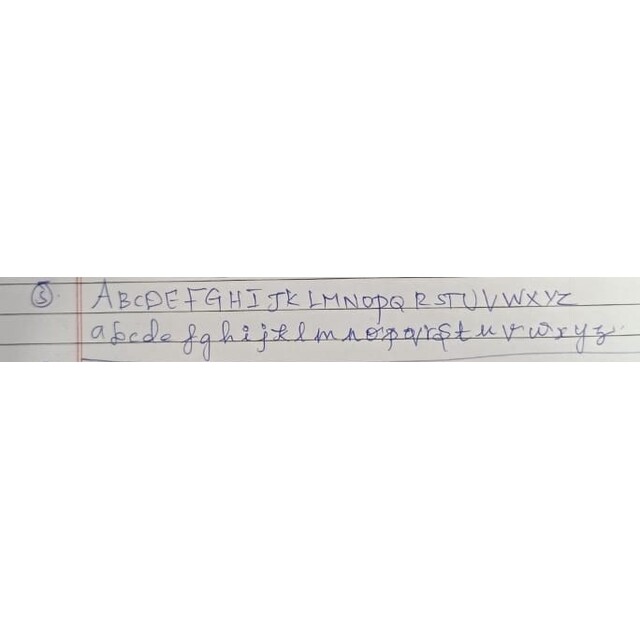 ③. ABCDEFGHIJKLMNOPQRSTUVWXYZ
abcdefghijklmnopqrstuvwxyz